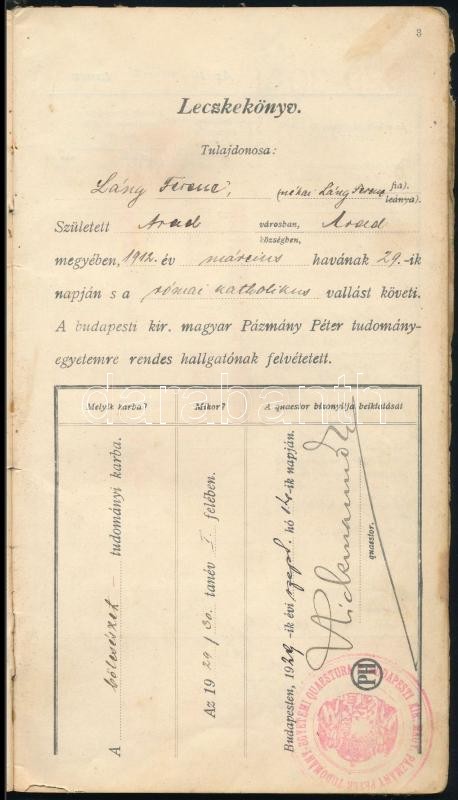 3
Leczkekönyv.
Tulajdonosa:
Láng Ferenc, (néhai Láng Ferenc fia). leánya).
Született Arad városban, községben, Arad
megyében, 1912. év március havának 29.-ik
napján s a római katholikus vallást követi.
A budapesti kir. magyar Pázmány Péter tudomány-
egyetemre rendes hallgatónak felvétetett.
Melyik karba?
Mikor?
A quaestor bizonyitja beiktatását
A bölcsészet - tudományi karba.
Az 1929/30. tanév I. felében.
Budapesten, 1929-ik évi szept. hó -ik napján.
quaestor.
PH
darabanth